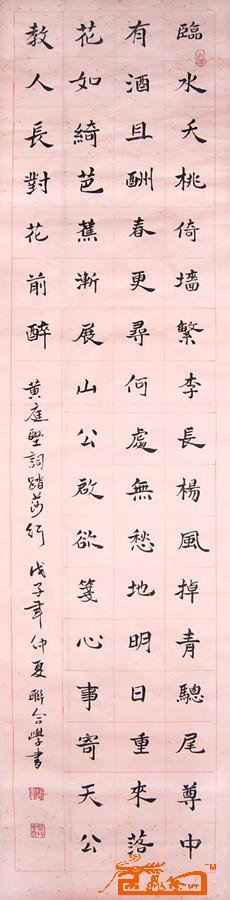 臨水夭桃倚墻繁李長楊風掉青驄尾尊中
有酒且酬春更尋何處無愁地明日重來落
花如綺芭蕉漸展山公啟欲箋心事寄天公
教人長對花前醉
黃庭堅詞踏莎行 戊子年仲夏聯合學書